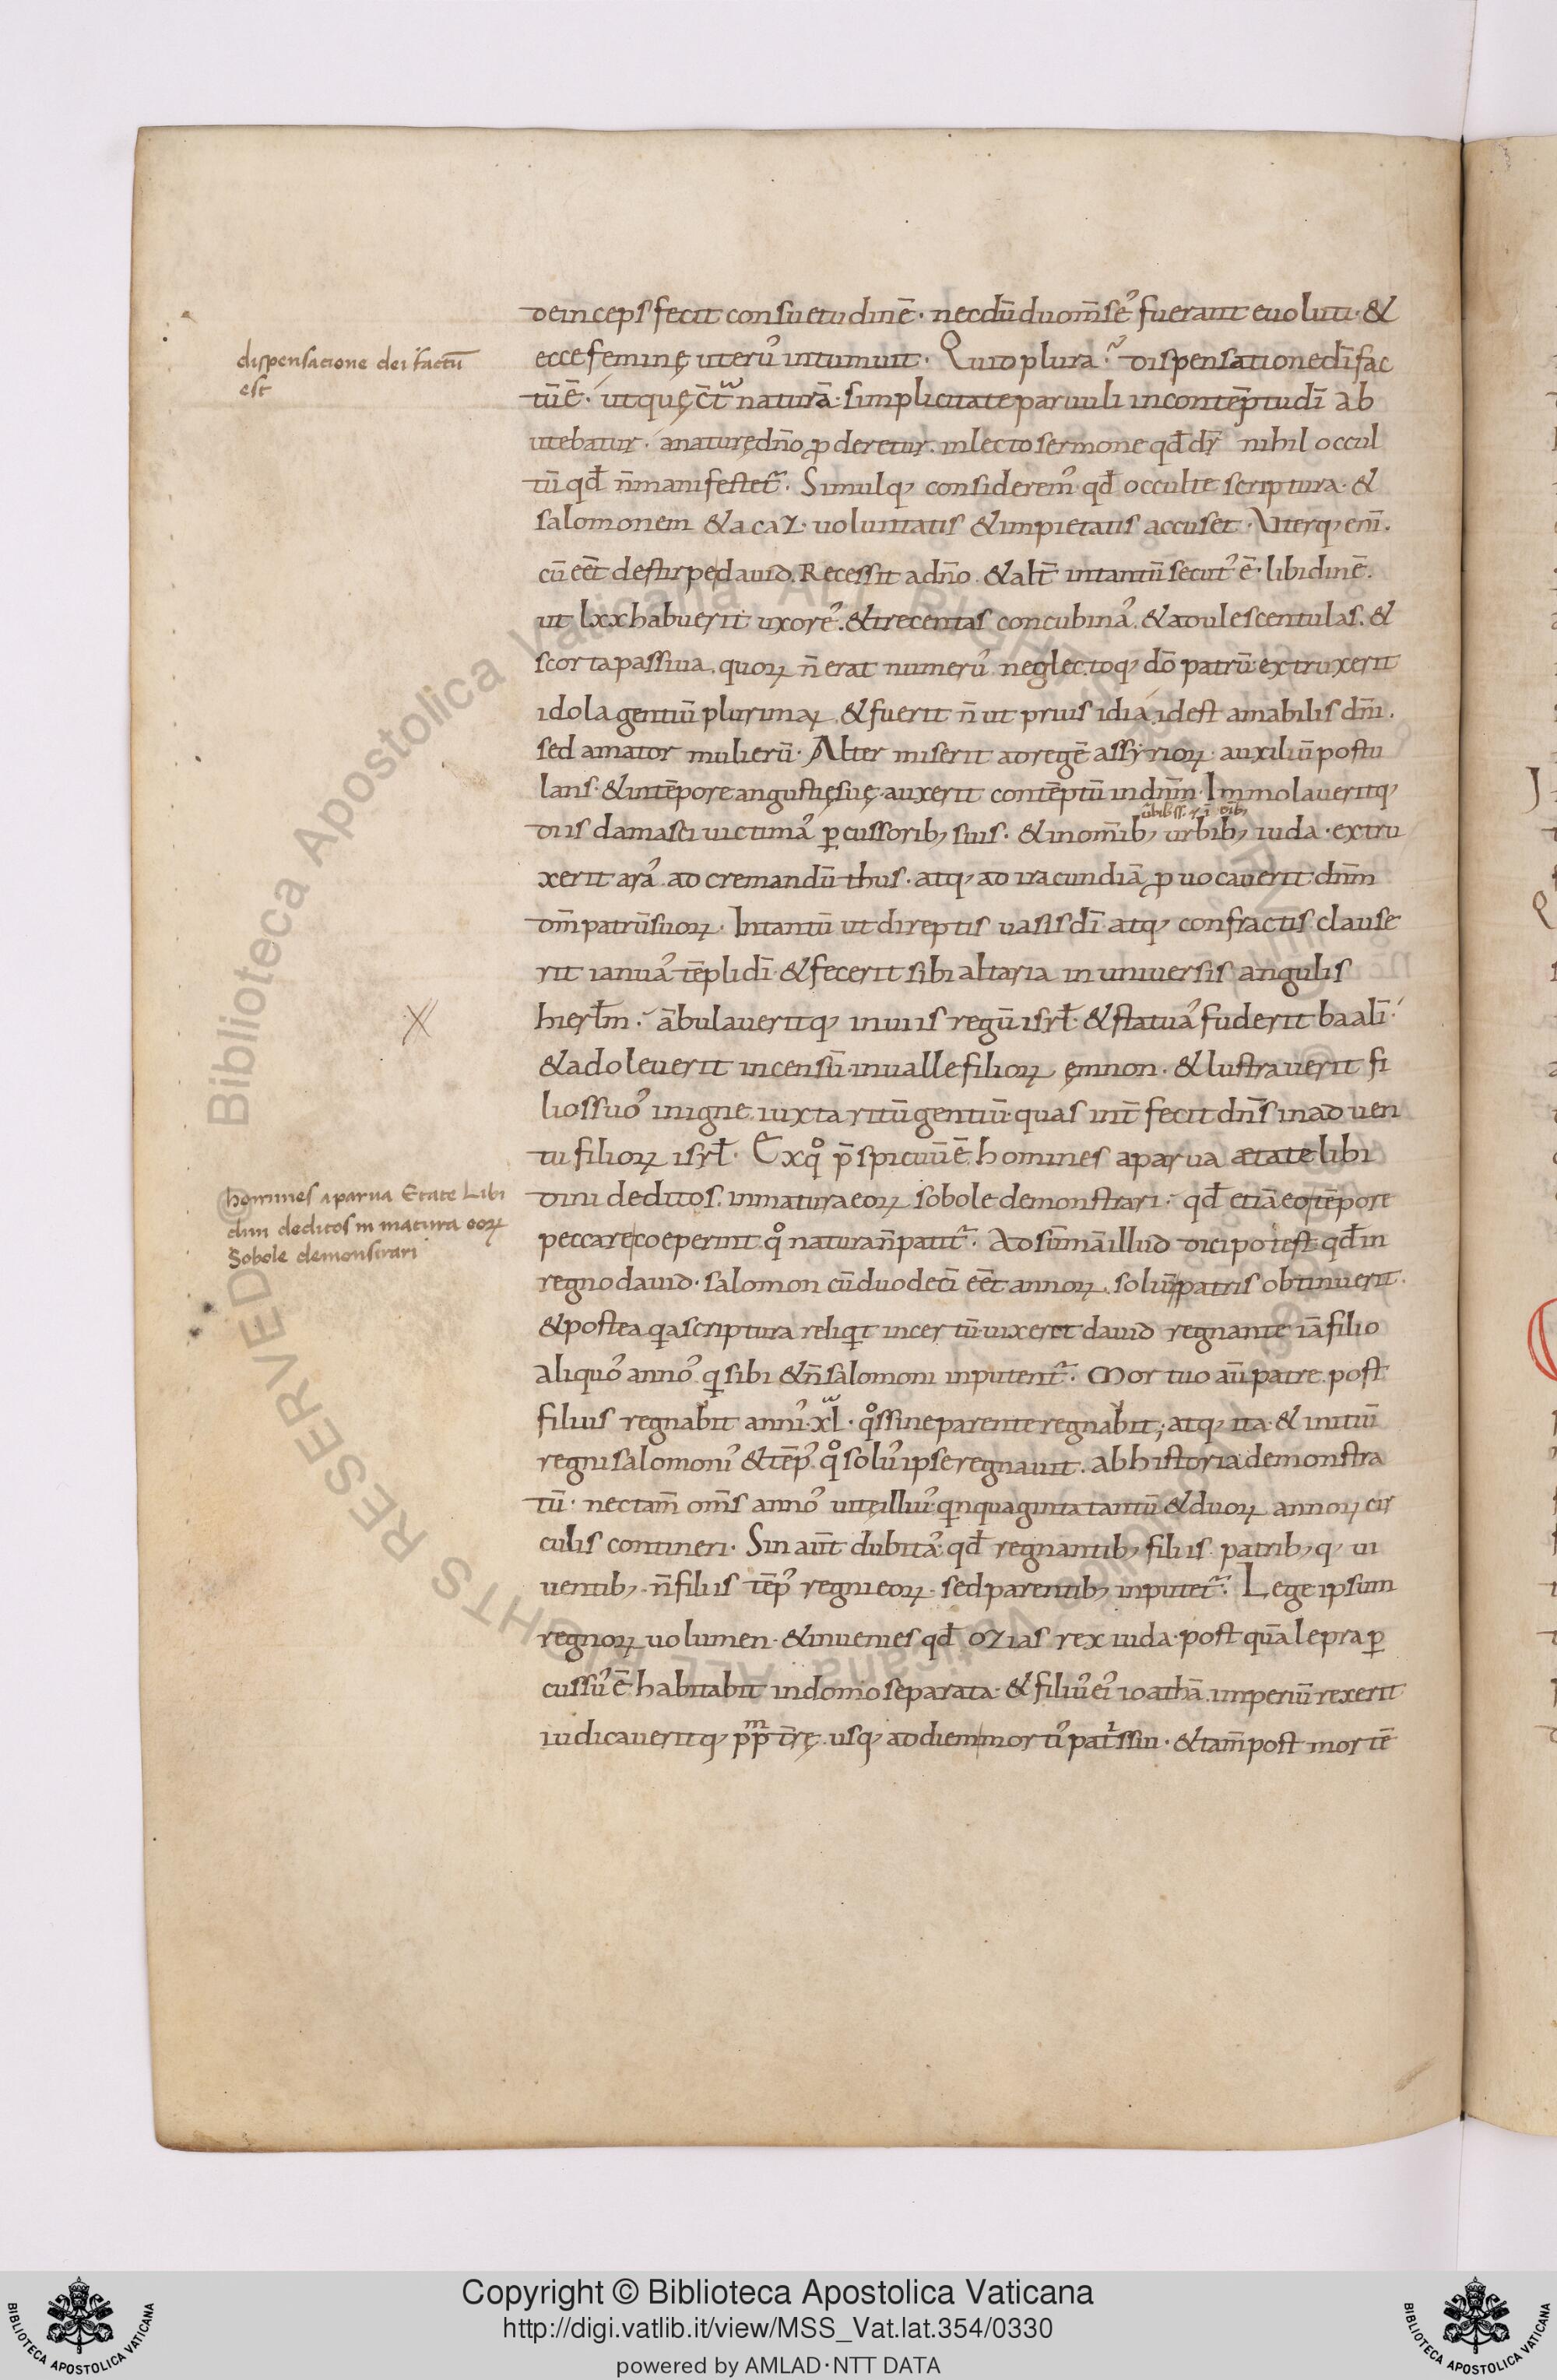 deinceps fecit consuetudinē· necdū duo m̄seˀ fuerant euoluti· &
dispensacione dei factū
est
ecce feminę uteruˀ intumuit· Quid plura? dispensatione dī fac
tū ē· ut quę c̄t natura· simplicitate paruuli in contēptu dī ab
utebatur· a naturę dn̄o ꝓderetur· in lecto sermone qđ dr̄ nihil occul
tū qđ n̄ manifestet᷑· Simulq; consideremˀ qđ occulte scriptura· &
salomonem & acaz· uoluntatis & impietatis accuset· Vterq; enī·
cū eēt de stirpe dauid. Recessit a dn̄o· & alt̄ intantū secutˀ ē· libidinē·
ut lxx habuerit uxoreˀ· & trecentas concubinaˀ· & adulescentulas· &
scorta passiua· quoꝝ n̄ erat numeruˀ neglectoq; dō patrū extruxerit
idola gentiū plurimaꝝ· & fuerit n̄ ut prius idia id est amabilis dn̄i·
sed amator mulierū· Alter miserit ad regē assyrioꝝ· auxiliū postu
lans· & in tēpore angustię suę auxerit contēptū in dnm̄· Immolaueritq;
diis damasci uictimaˀ ꝑcussorib; suis· & in om̄ib; urbib; iuda· extru
xerit araˀ ad cremandū thus· atq; ad iracundiā ꝓuocauerit dnm̄
dm̄ patrū suoꝝ· Intantū ut direptis uasis dī atq; confractis clause
rit ianuaˀ tēpli dī· & fecerit sibi altaria in uniuersis angulis
hierłm· ābulaueritq; in uiis regū isrł· & statuaˀ fuderit baalī·
& adoleuerit incensū in ualle filioꝝ ęmnon· & lustrauerit fi
lios suoˀ in igne iuxta ritū gentiū quas int̄fecit dn̄s in aduen
tu filioꝝ isrł· Ex qͦ p̄spicuū ē homines a parua ætate libi
homines a parua Etate Libi
dini deditos in matura eoꝝ
Sobole demonstrari
dini deditos· in matura eoꝝ sobole demonstrari· qđ etiā eo tēpore
peccare coeperint qͦ natura n̄ patit᷑· Ad sūmā illud dici potest qđ in
regno dauid· salomon cū duodecī eēt annoꝝ· soliū patris obtinuerit·
& postea qa scriptura reliqt incertū uixeret dauid regnante iā filio
aliquoˀ annoˀ q sibi & n̄ salomoni inputent᷑· Mortuo aū patre· post
filius regnabit anniˀ xl· qͦs sine parente regnabit; atq; ita· & initiū
regni salomoniˀ & tēpˀ qͦ soluˀ ipse regnauit· ab historia demonstra
tū· nec tam̄ om̄s annoˀ uitę illiuˀ qnquaginta tantū & duoꝝ annoꝝ cir
culis contineri· Sin aut̄ dubitaˀ qđ regnantib; filiis patrib; q; ui
uentib; n̄ filiis tēpˀ regni eoꝝ· sed parentib; inputet᷑· Lege ipsum
regnoꝝ uolumen· & inuenies qđ ozias rex iuda· postquā lepra ꝑ
cussuˀ ē habitabit in domo separata· & filiuˀ eiˀ ioathā imperiū rexerit
iudicaueritq; pp̄m tr̄ę usq; ad diem mortiˀ patris sui· & tam̄ post mortē
Copyright © Biblioteca Apostolica Vaticana
http://digi.vatlib.it/view/MSS_Vat.lat.354/0330
powered by AMLAD·NTT DATA